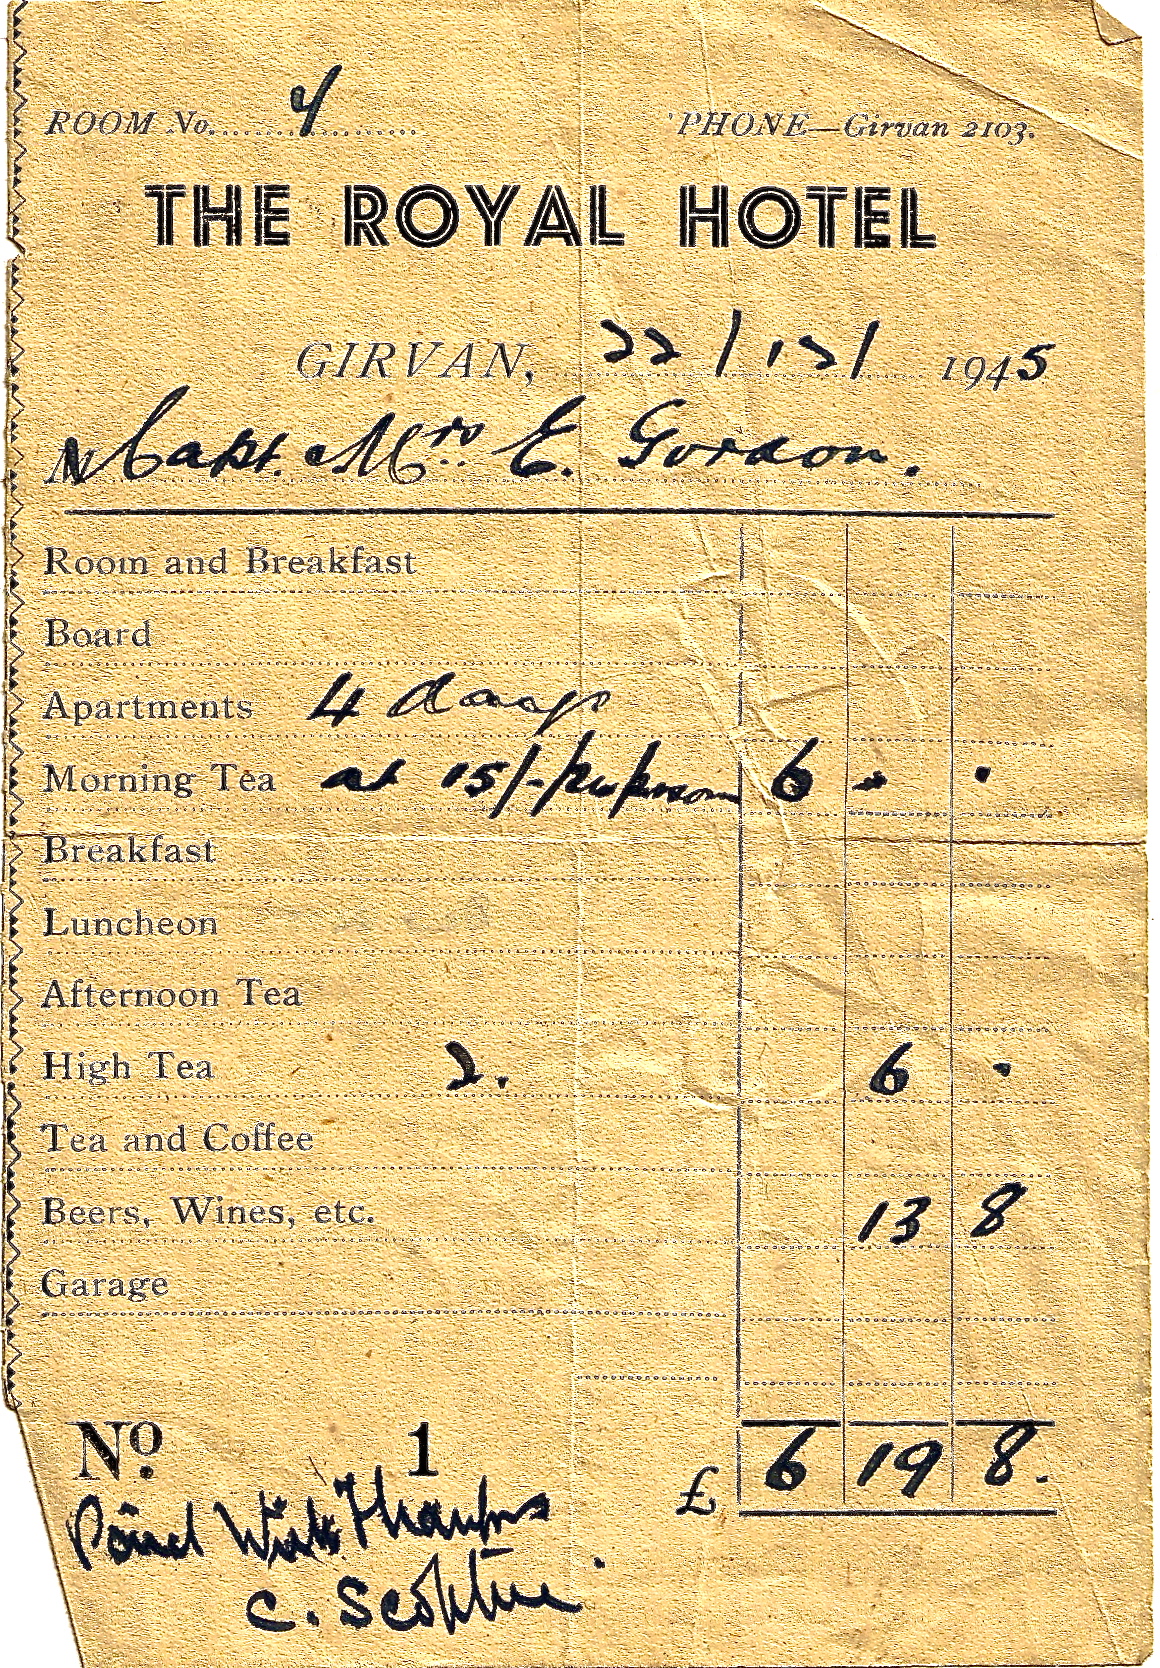 ROOM No. 4 'PHONE—Girvan 2103.
THE ROYAL HOTEL
GIRVAN, 22/12/ 1945
Capt. Mrs E. Gordon.
Room and Breakfast
Board
Apartments 4 days
Morning Tea at 15/- per person 6 . .
Breakfast
Luncheon
Afternoon Tea
High Tea 2. 6 .
Tea and Coffee
Beers, Wines, etc. 13 8
Garage
No. 1 £ 6 19 8.
Paid With Thanks
C.